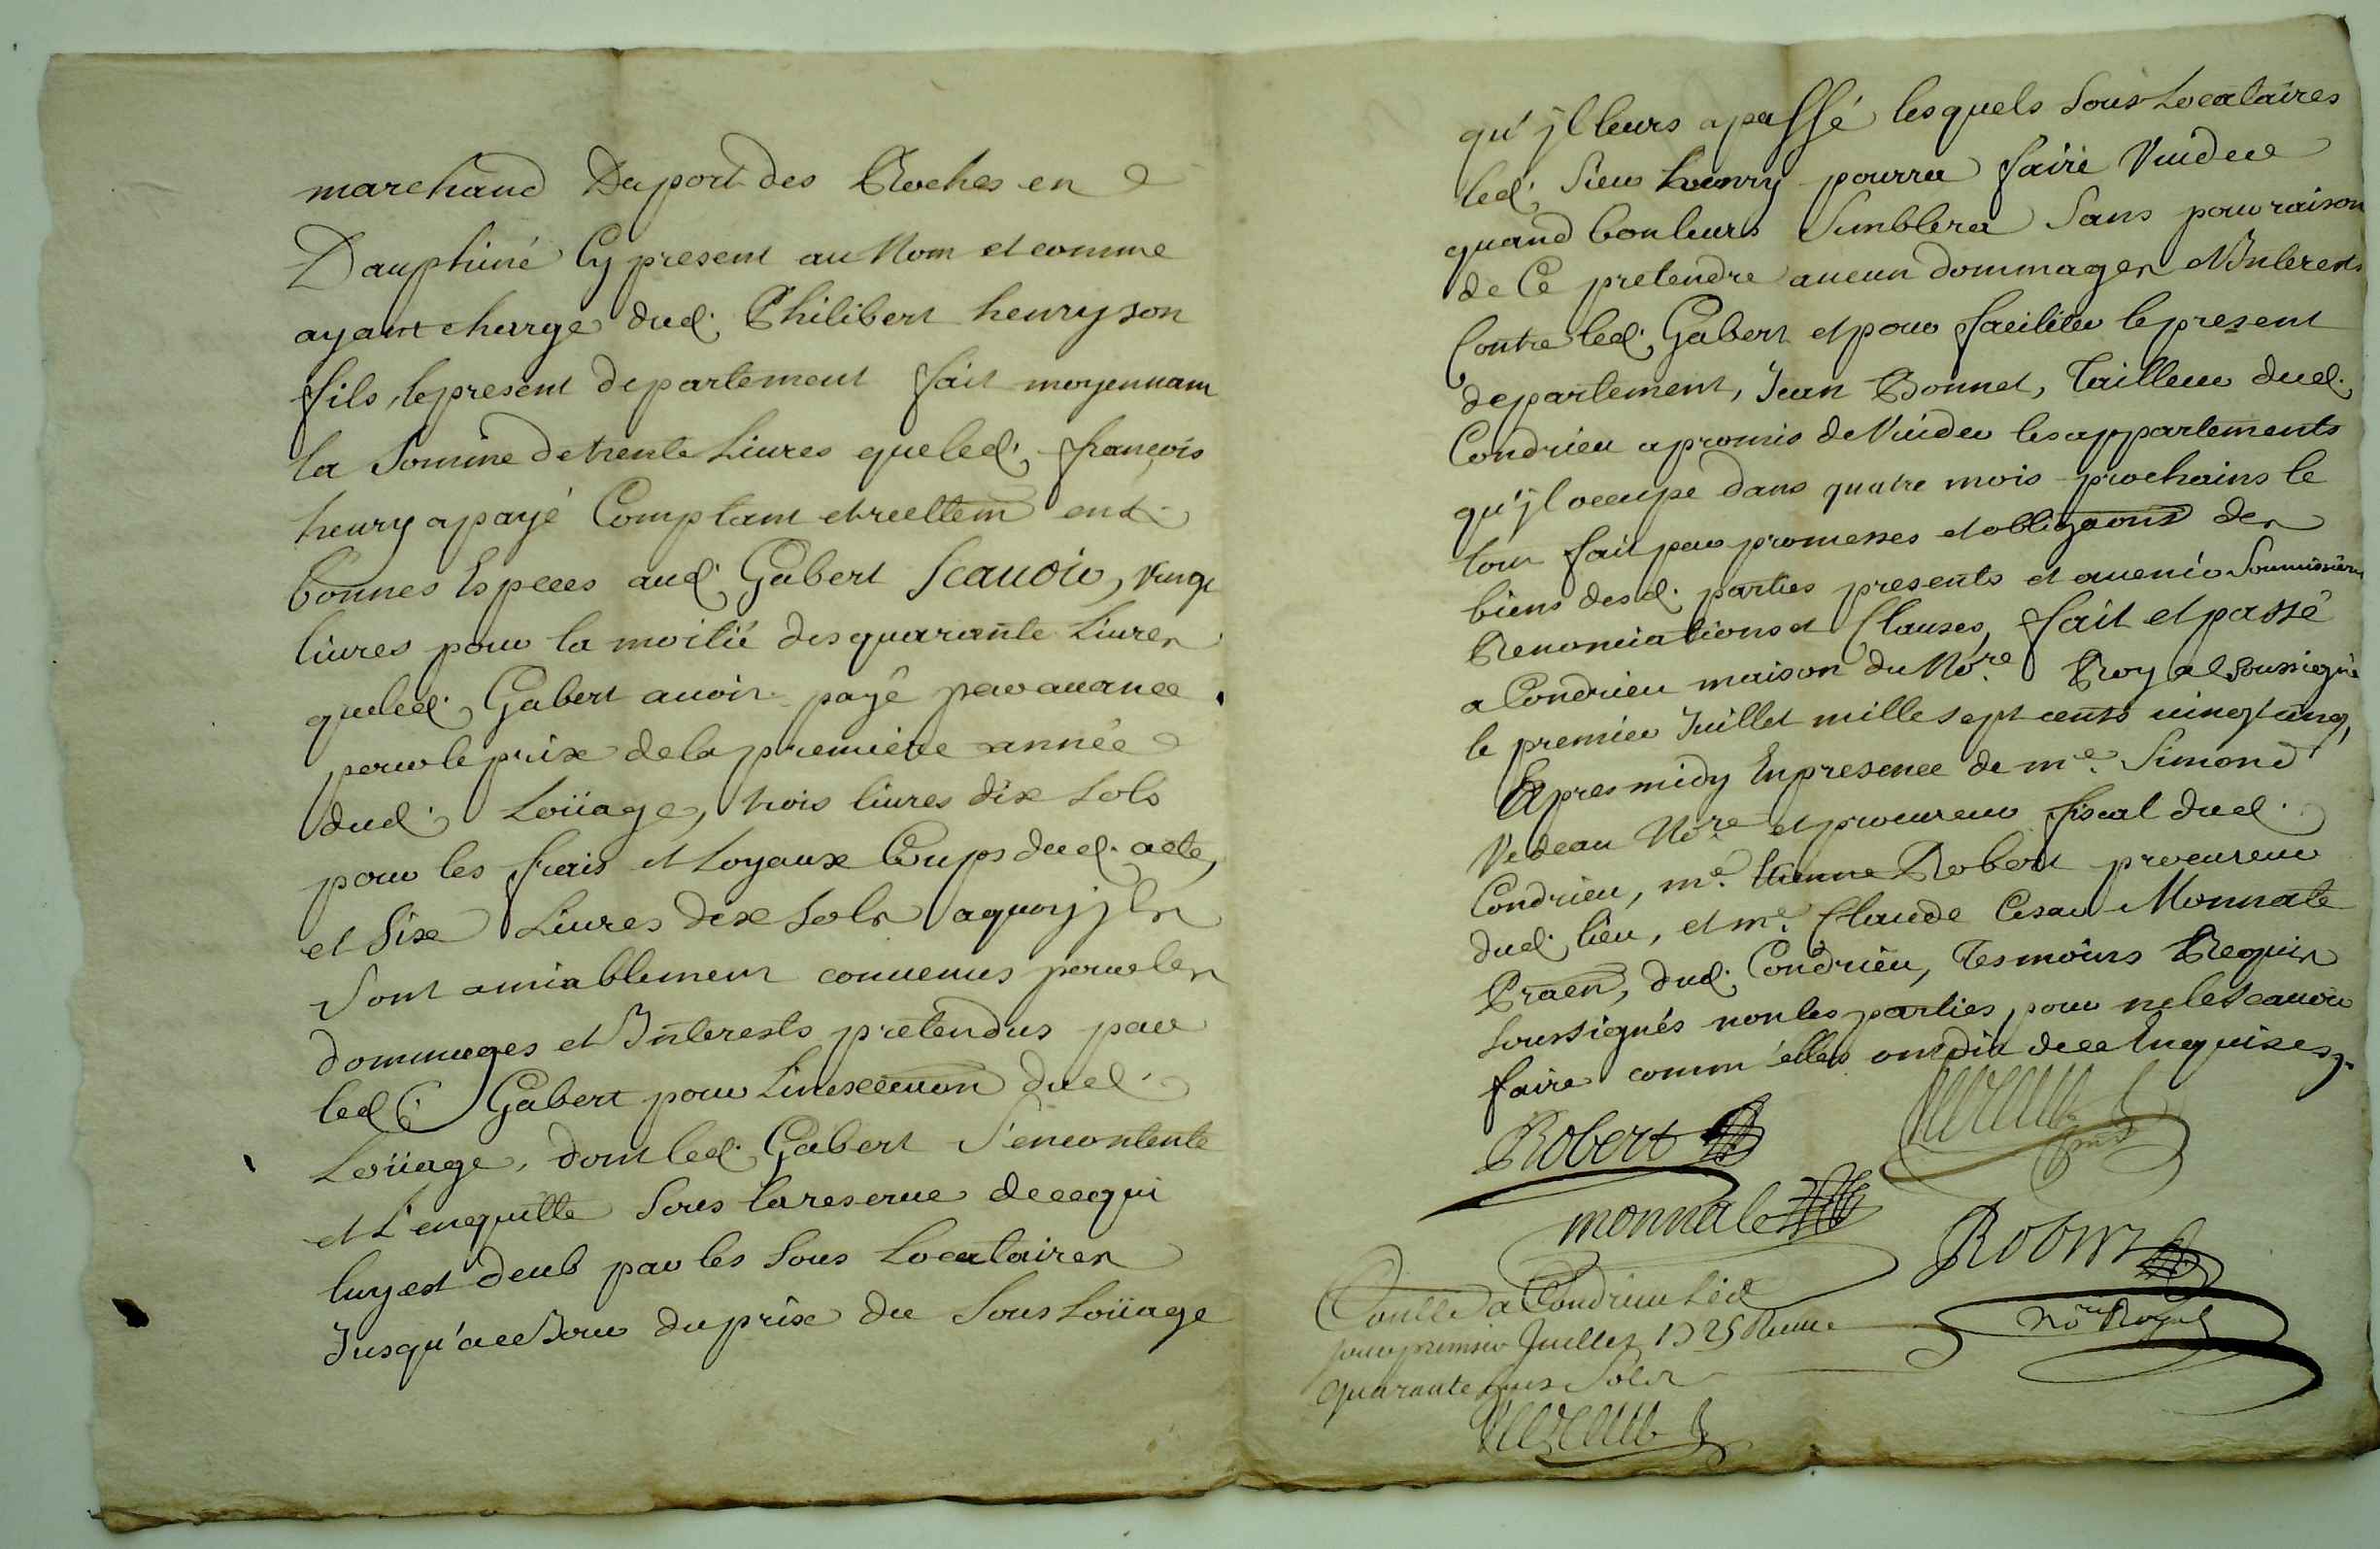 marchand Du port des Roches en
Dauphiné Cy present au Nom et comme
ayant charge dud. Philibert henry son
fils, le present departement fait moyennant
la Somme de trente Liures que led. françois
henry a payé Comptant et reellem en
bonnes Especes aud. Gabert Scauoir, vingt
liures pour la moitié des quarante Liures
que led. Gabert auoit payé par auance
pour le prix de la premiere année
dud. Loüage, trois liures dix sols
pour les frais et Loyaux Coups dud. acte,
et Six Liures dix sols a quoy jls
Sont amiablement conuenus pour les
dommages et Interests pretendus par
led. Gabert pour Linexecution dud.
Loüage, dont led. Gabert S'en contente
et L'en quitte Sous la reserue de ce qui
luy est deub par les Sous Locataires
Jusqu'a ce Jour du prix du Sous Loüage
qu'jl leurs a passé lesquels Sous Locataires
led. Sieur henry pourra faire Vuider
quand bon leurs Semblera Sans pour raison
de Ce pretendre aucun dommages et Interests
Contre led. Gabert et pour faciliter le present
departement, Jean Bonnet, Tailleur dud.
Condrieu a promis de Vuider les appartements
qu'jl occupe dans quatre mois prochains le
tout fait par promesses et obligaons des
biens desd. parties presents et auenir Soumissions
Renonciations et Clauses, fait et passé
a Condrieu maison du No.re Royal soussigné
le premier Juillet mille sept cents vingt cinq,
Apres midy En presence de m.e Simond
Vedeau No.re et procureur fiscal dud.
Condrieu, m.e Etienne Robert procureur
dud. lieu, et m.e Claude Cesar Monnate
Praen, dud. Condrieu, Tesmoins Requis
soussignés non les parties pour ne le scauoir
faire comm'elles ont dit de ce Enquises.
Robert Vedeau
monnate
Robin
No.re Royal
Conllé a Condrieu Led.
jour premier Juillet 1725 Receu
quarante Sols
Vedeau